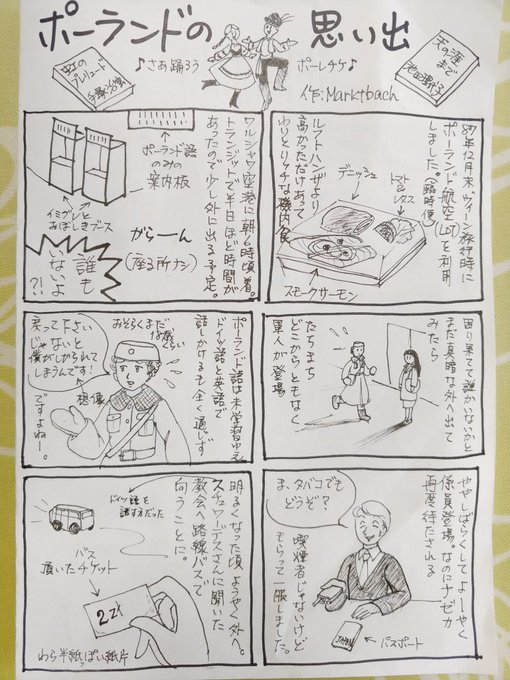 ポーランドの思い出
♪さあ踊ろう
ポーレチケ♪
虹のプレリュード
手塚治虫
天の涯まで
池田理代子
作:Marktbach
87年12月末、ウィーン旅行時に
ポーランド航空(LOT)を利用
しました。(臨時便)
ルフトハンザより
高かっただけあって
わりとリッチな機内食
デニッシュ
トマト
レタス
スモークサーモン
ワルシャワ空港に朝6時頃着。
トランジットで半日ほど時間が
あったので少し外に出る予定。
ポーランド語
のみの
案内板
イミグレと
おぼしきブース
がらーん
(座る所ナシ)
誰も
いないよ
?!
困り果てて誰かいないかと
まだ真暗な外へ出て
みたら
たちまち
どこからともなく
軍人が登場
ポーランド語は未学習ゆえ
ドイツ語と英語で
話しかけるも全く通じず
おそらくまだ
戻って下さい
じゃないと
僕がしかられて
しまうんです!
想像
ですよねー。
ややしばらくしてよーやく
係員登場。なのにナゼカ
再度待たされる
ま、タバコでも
どうぞ?
喫煙者じゃないけど
もらって一服しました。
パスポート
明るくなった頃ようやく外へ。
スチュワーデスさんに聞いた
教会へ路線バスで
向うことに
ドイツ語を
話す方だった
バス
頂いたチケット
2Zł
わら半紙っぽい紙片